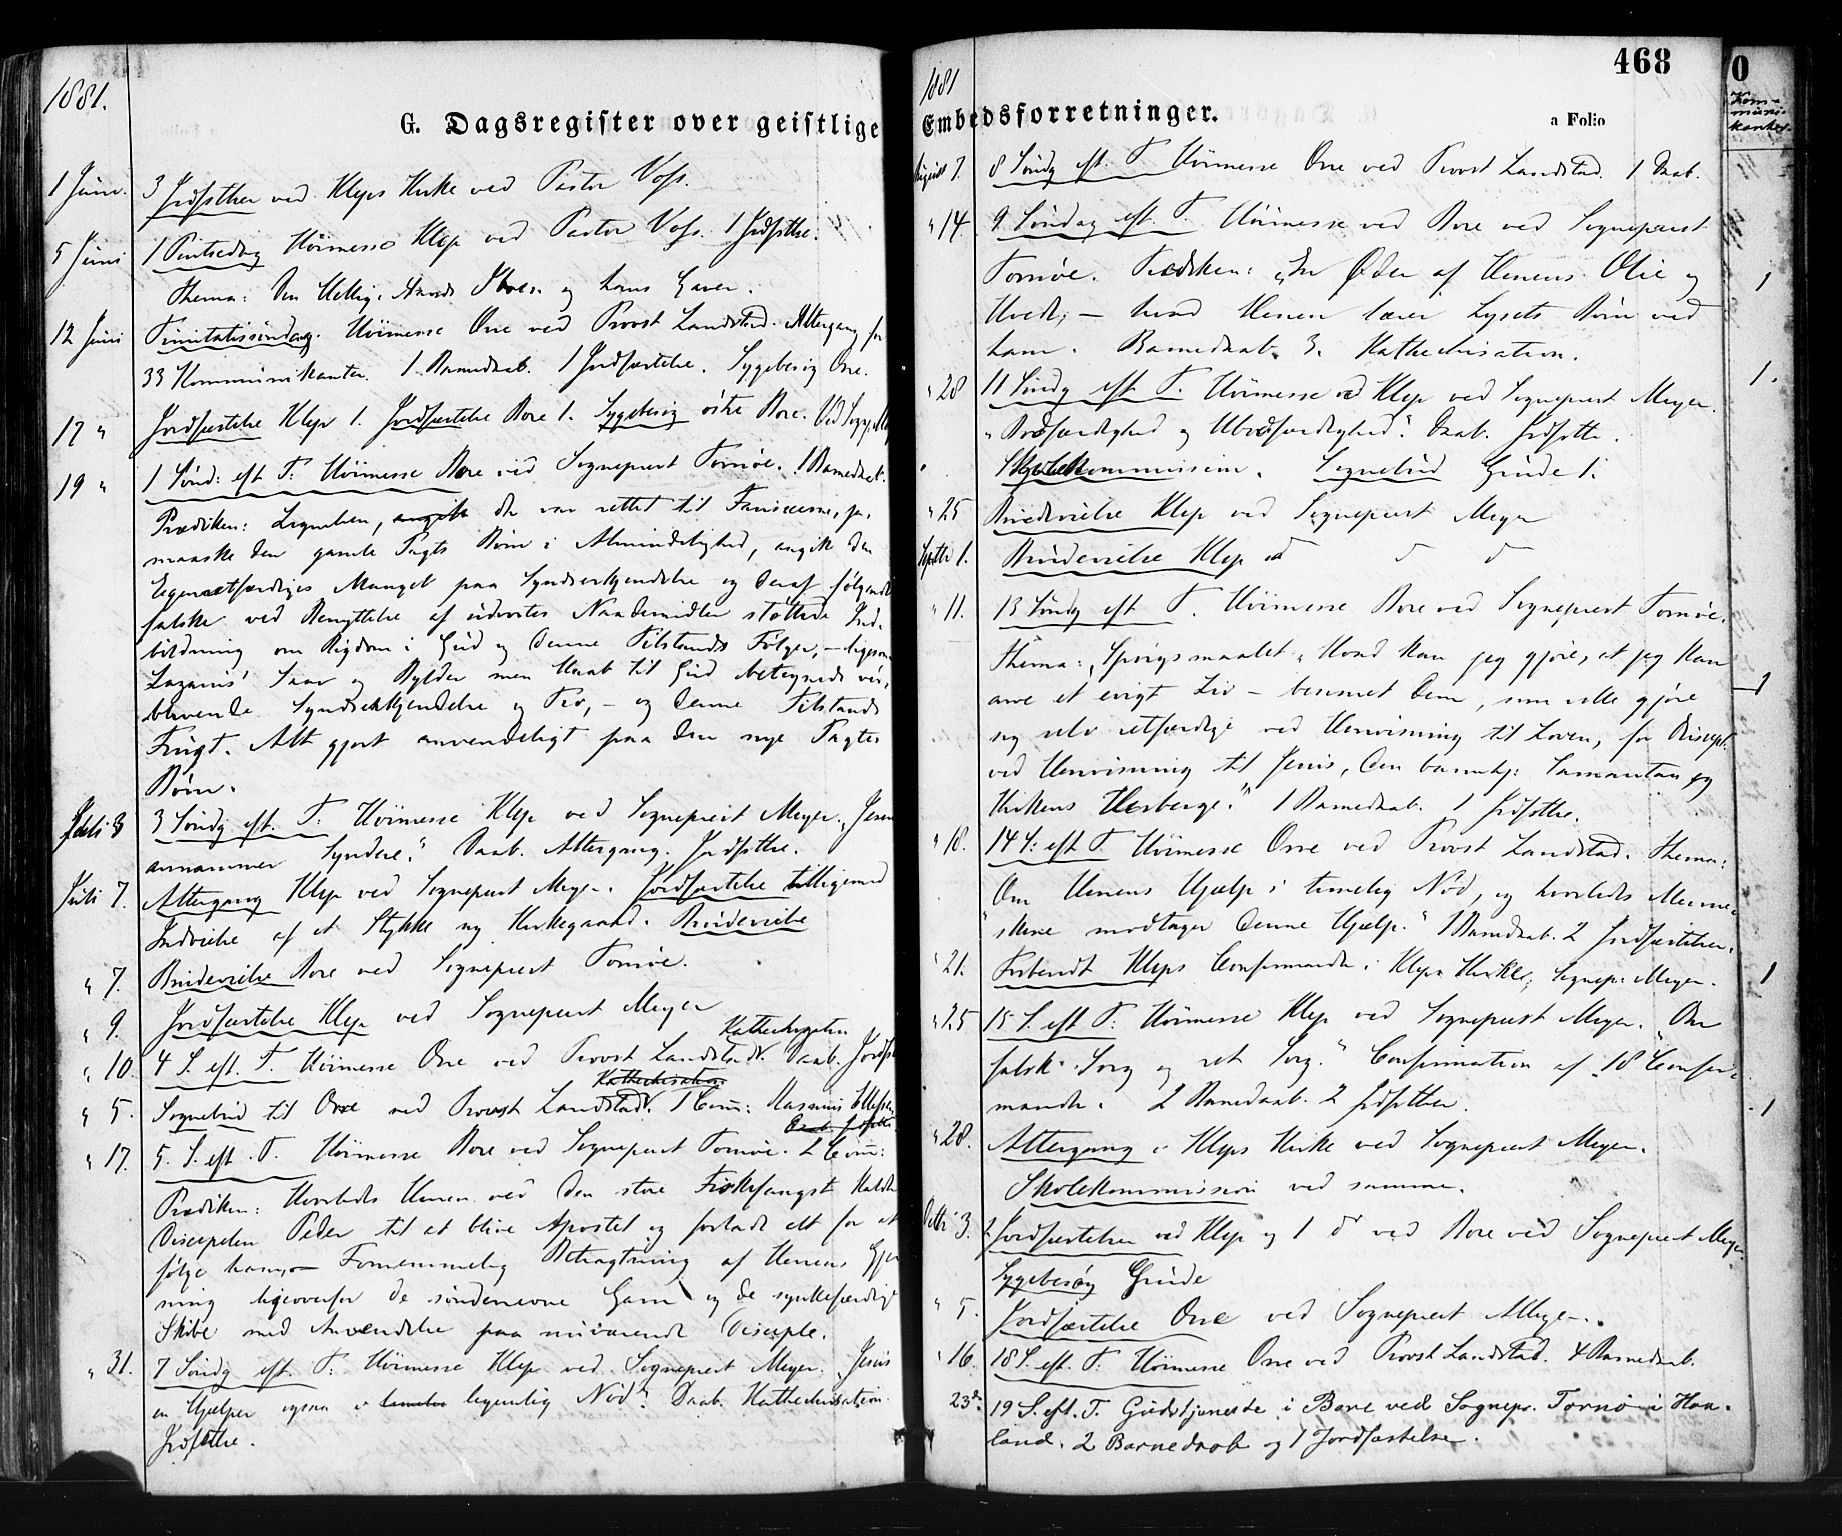 1881.
G. Dagsregister over geistlige
1 Juni. 3 Jrdfsthser ved Kleps Kirke ved Pastor Vofs.
5 Juni 1 Pintsedag Höimesse Klep ved Pastor Vofs. 1 Jrdfsthse.
Thema: Den Hellig. Aands og hans Gaver.
12 Juni Trinitatissöndag. Höimesse Orre ved Provst Landstad. Altergang for
33 Kommunikanter. 1 Barnedaab. 1 Jordfæstelse. Sygebesög Orre.
17 " Jordfæstelse Klep 1. Jordfæstelse Bore 1. Sygebesög östre Bore. Ved
19 " 1 Sönd: eft T: Höimesse Bore ved Sogneprest Tornöe. 1 Barnedaab.
Prædiken: Lignelsen, der var rettet til Fariseerne, ja,
maaske den gamle Pagts Börn i Almindelighed, angik den
Egenretfærdiges Mangel paa Syndserkjendelse og deraf fölgende
falske ved Benyttelse af udvortes Naademidler støttede Ind-
bildning om Rigdom i Gud og denne Tilstands Fölger, – ligesom
Lazarus' Saar og Bylder men Haab til Gud betegnede
blivende Syndserkjendelse og Tro, – og denne Tilstands
Frugt. Alt gjort anvendeligt paa den nye Pagtes
Börn.
Juli 3 3 Söndg eft. T: Höimesse Klep ved Sogneprest Meyer. "Jesus
annammer Syndere." Daab. Altergang. Jrdfsthse.
Juli 7. Altergang Klep ved Sogneprest Meyer. Jordfæstelse tilligemed
Indvielse af et Stykke ny Kirkegaard. Brudevielse
" 7. Brudevielse Bore ved Sogneprest Tornöe.
" 9. Jordfæstelse Klep ved Sogneprest Meyer
Kathechisation
" 10. 4 S. eft. T. Höimesse Orre ved Provst Landstad. Daab. Jordfs
Kathechisation
" 5. Sognebud til Orre ved Provst Landstad. 1 Com: Rasmus
" 17. 5. S. eft. T. Höimesse Bore ved Sogneprest Tornöe. 2 Com:
Prædiken: Hvorledes Herren ved den store Fiskefangst kaldte
Discipelen Peder til at blive Apostel og forlade alt for at
fölge ham, – Fornemmelig Betragtning af Herrens Gjer
ning ligeoverfor de sönderrevne Garn og de synkefærdige
Skibe med Anvendelse paa nuværende Disciple.
" 31. 7 Söndg eft. T: Höimesse Klep ved Sogneprest Meyer. "Jesus
en Hjælper ogsaa i legemlig Nöd." Daab. Kathechisation
Jrdfsthse.
1881
468
Embedsforretninger.
a Folio
August 7. 8 Söndg eft. T. Höimesse Orre ved Provst Landstad. 1 Daab.
" 14. 9 Söndag eft T. Höimesse ved Bore ved Sogneprest
Tornöe. Prædiken: "En Öder af Herrens Olie og
Hvede, – hvad Herren lærer Lysets Börn ved
ham. Barnedaab 3. Kathechisation.
" 28 11 Söndg eft T. Höimesse ved Klep ved Sogneprest Meyer.
" Bodfærdighed og Ubodfærdighed." Daab. Jrdfsthse.
Skolekommission. Sognebud Grude 1.
" 25 Brudevielse Klep ved Sogneprest Meyer
Septbr 1. Brudevielse Klep
" 11. 13 Söndg eft T. Höimesse Bore ved Sogneprest Tornöe.
Thema: "Spörgsmaalet "Hvad kan jeg gjöre, at jeg kan
arve et evigt Liv – besvaret dem, som ville gjöre
sig selv retfærdige ved Henvisning til Loven, for
ved Henvisning til Jesus, den barmhj: Samaritan og
Kirkens Herberge." 1 Barnedaab. 1 Jrdfsthse.
" 18. 14 S: eft T. Höimesse Orre ved Provst Landstad. Thema:
Om Herrens Hjælp i timelig Nöd, og hvorledes Menne-
"skene modtager denne Hjælp." 1 Barnedaab. 2 Jordfæstelser.
" 21. Forberedt Kleps Confirmander i Kleps Kirke, Sognepr: Meyer.
" 25 15 S. eft T: Höimesse Klep ved Sogneprest Meyer. "Om
falsk Sorg og ret Sorg." Confirmation af 18 Confir-
mander. 2 Barnedaab. 2 Jrdfsthser.
" 28. Altergang i Kleps Kirke ved Sogneprest Meyer.
Skolekommission ved samme.
Octbr 3. 2 Jordfæstelser ved Klep og 1 do ved Bore ved Sogneprest Meyer.
Sygebesög Grude
" 5. Jordfæstelse Orre ved Sogneprest Meyer.
" 16. 18 S. eft. T: Höimesse Orre ved Provst Landstad. 4 Barnedaab.
23de 19 S. eft. T. Gudstjeneste i Bore ved Sognepr. Tornö i Haa-
land. 2 Barnedaab og 1 Jordfæstelse.
0
Kom-
muni-
kanter.
1
1.
1
1
1